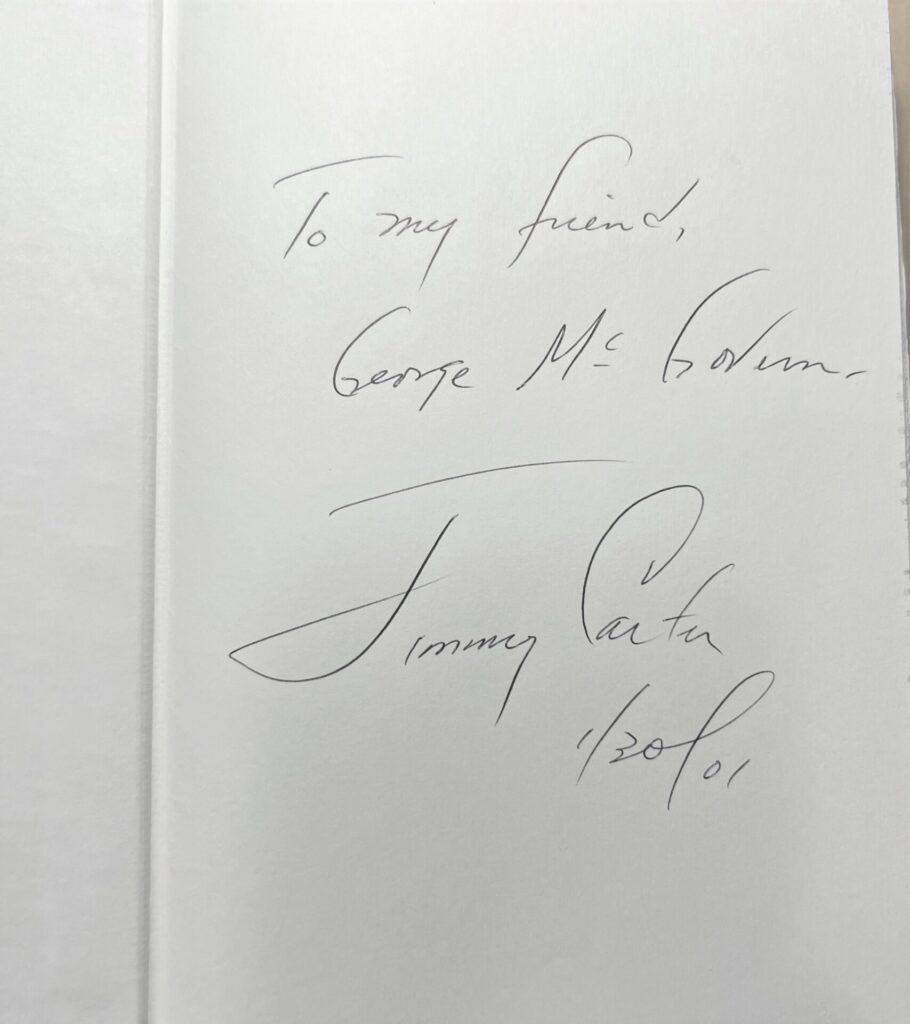 To my friend,
George Mc Govern -
Jimmy Carter
1/30/01